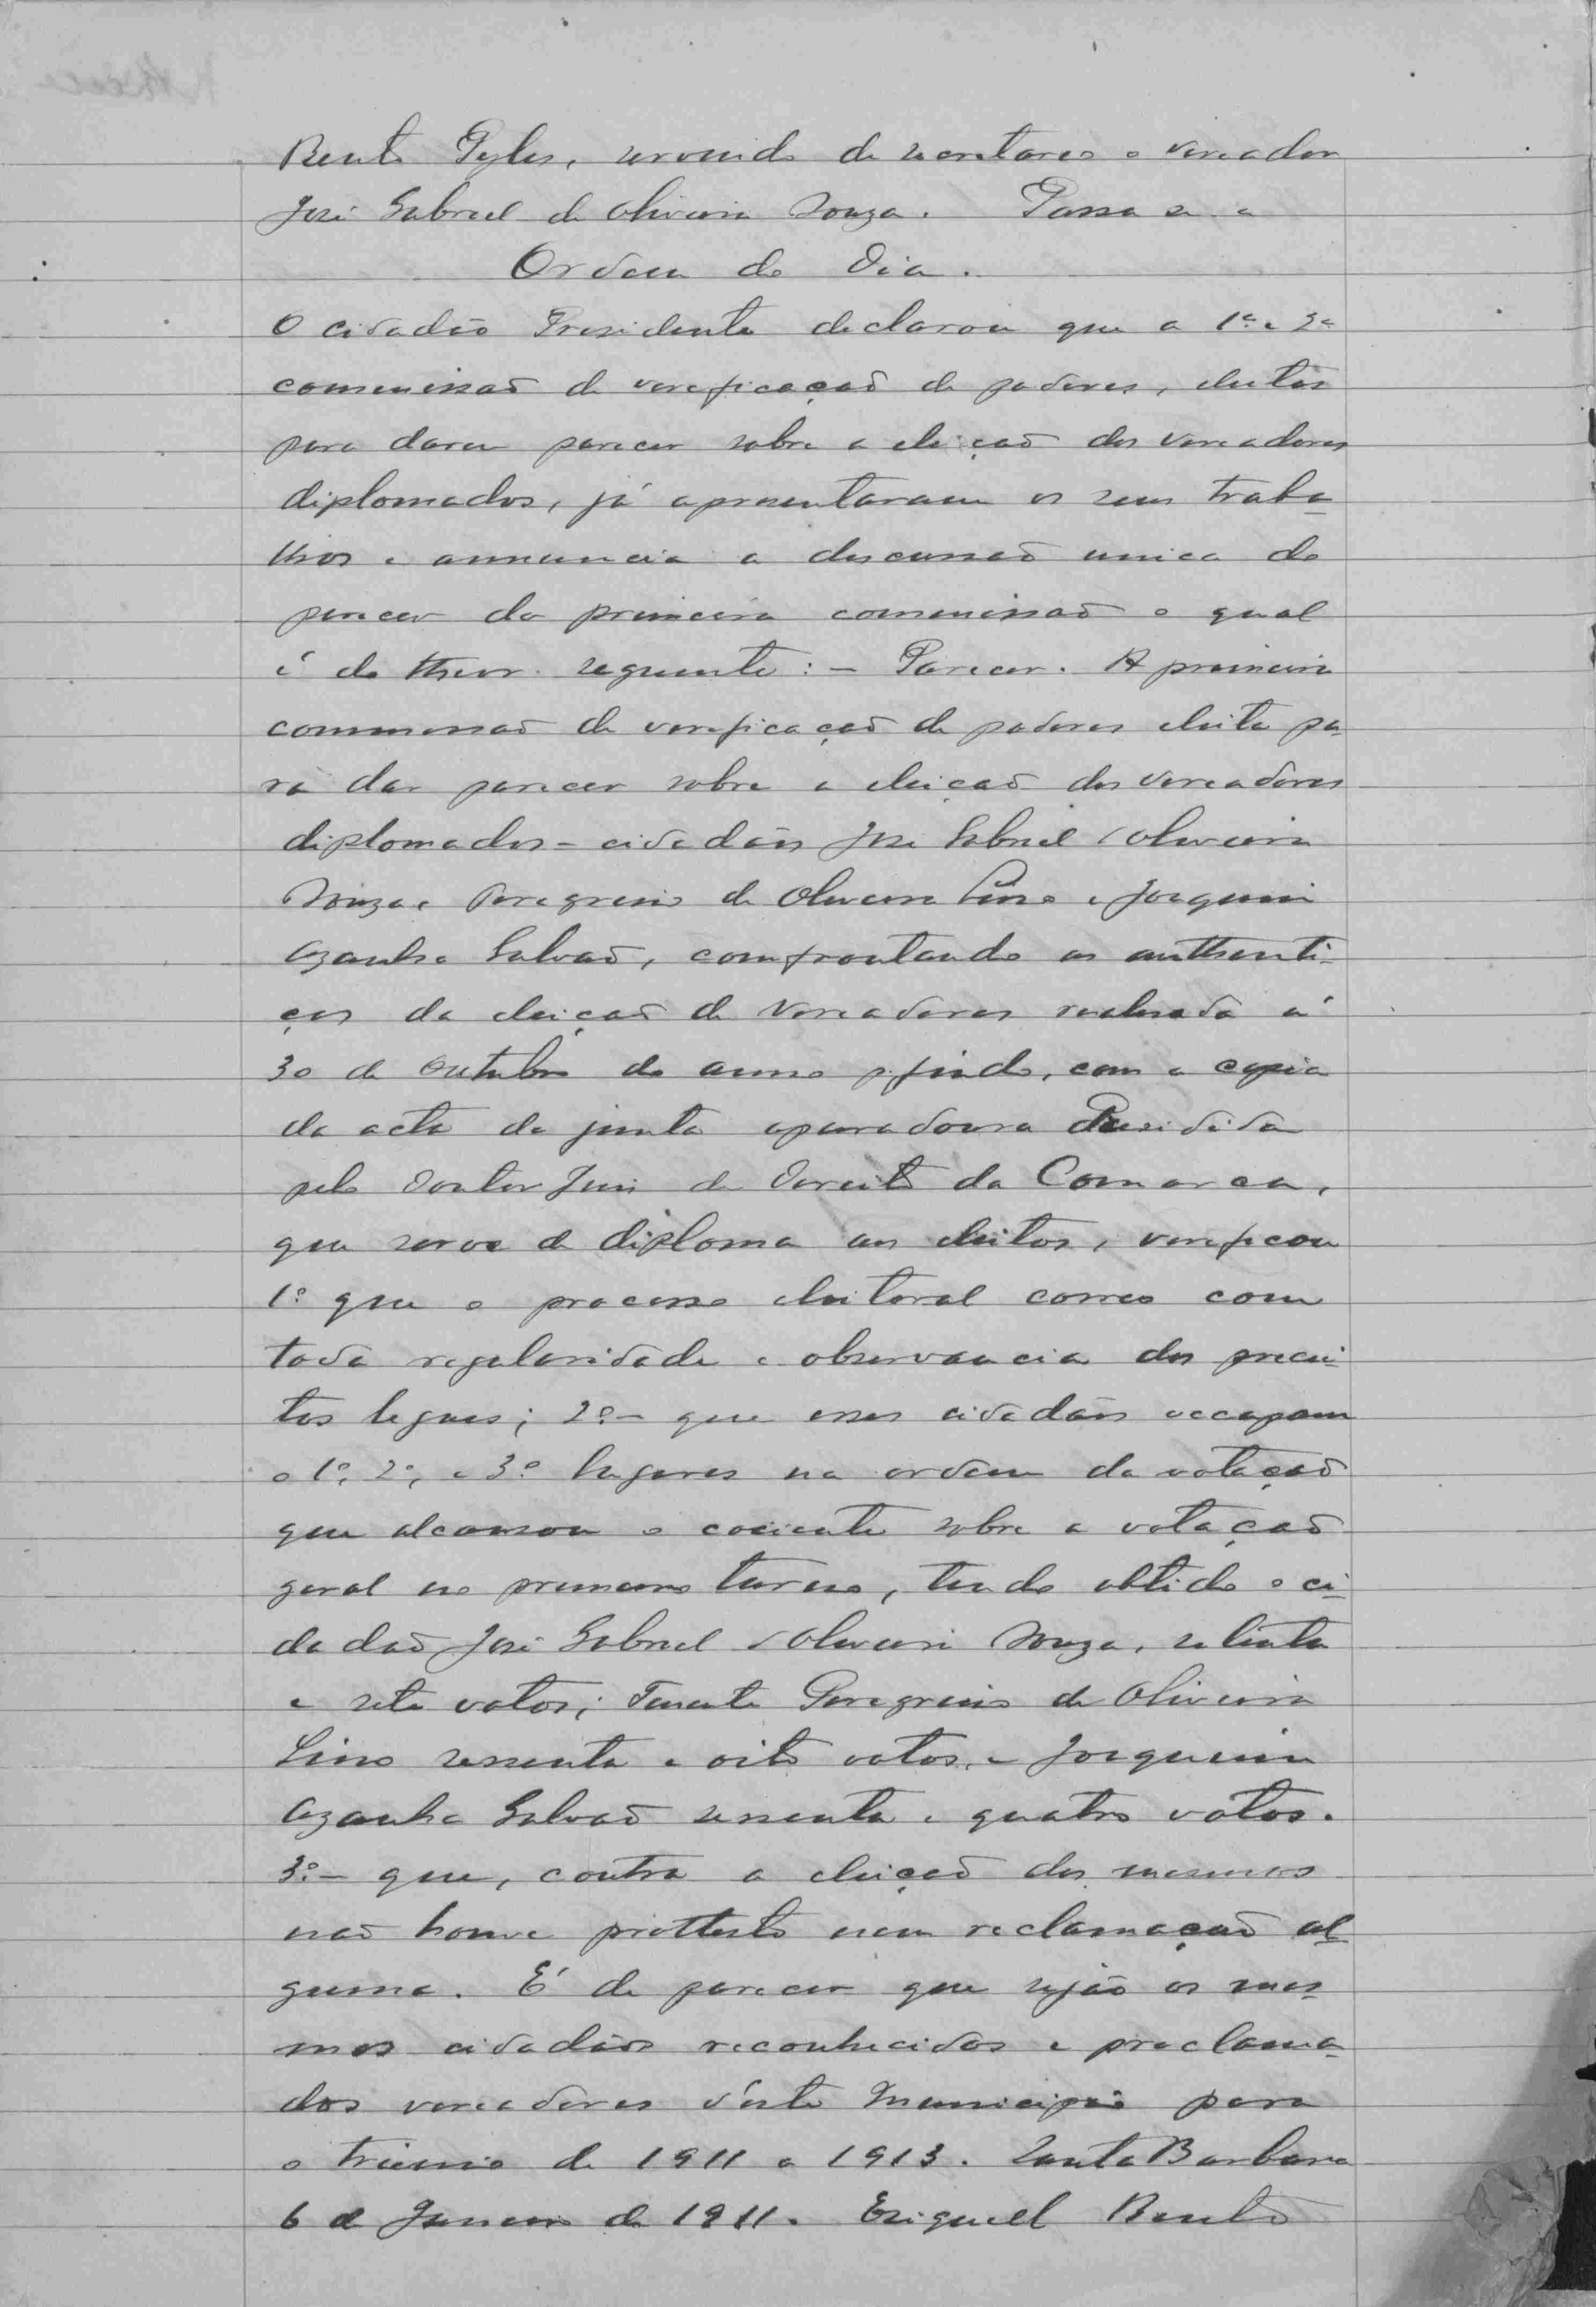 Bento Pyles, servindo de secretario o vereador
José Gabriel de Oliveira Souza. Passa se a
Ordem do Dia.
O cidadão Presidente declarou que a 1ª e 2ª
commissaõ de verificaçaõ de poderes, eleitas
para darem parecer sobre a eleiçaõ dos vereadores
diplomados, já apresentaram os seus traba-
lhos e annuncia a discussaõ unica do
parecer da primeira commissaõ o qual
é do theor seguinte: - Parecer. A primeira
commissaõ de verificaçaõ de poderes eleita pa-
ra dar parecer sobre a eleiçaõ dos vereadores
diplomados - cidadãos José Gabriel d'Oliveira
Souza, Peregrino de Oliveira Lino e Joaquim
Azanha Galvaõ, comfrontando as authenti-
cas da eleiçaõ de Vereadores realisada á
30 de Outubro do anno p. findo, com a copia
da acta da junta apuradoura Presidida
pelo Doutor Juis de Dereito da Comarca,
que serve de diploma aos eleitos, verificou
1º que o processo eleitoral correo com
toda regularidade e observancia dos precei-
tos legaes; 2º - que esses cidadãos occupam
o 1º, 2º, e 3º lugares na ordem da votaçaõ
que alcansou o cociente sobre a votaçaõ
geral no primeiro turno, tendo obtido o ci-
dadaõ José Gabriel d'Oliveira Souza, setenta
e sete votos; Tenente Peregrino de Oliveira
Lino sessenta e oito votos, e Joaquim
Azanha Galvaõ sessenta e quatro votos.
3º - que, contra a eleiçaõ dos mesmos
naõ houve prottesto nem reclamaçaõ al-
guma. É de parecer que sejão os mes-
mos cidadãos reconhecidos e proclama-
dos vereadores d'este Municipio para
o trienio de 1911 a 1913. Santa Barbara
6 de Janeiro de 1911. Eziquiel Bento